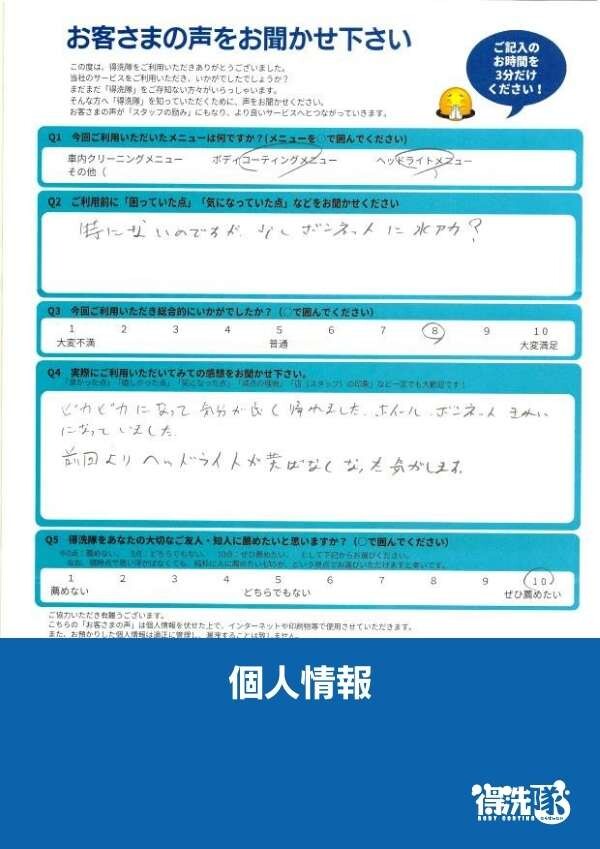 お客さまの声をお聞かせ下さい
ご記入の
お時間を
3分だけ
ください！
この度は、得洗隊をご利用いただきありがとうございました。
当社のサービスをご利用いただき、いかがでしたでしょうか？
まだまだ「得洗隊」をご存知ない方々がいらっしゃいます。
そんな方へ「得洗隊」を知っていただくために、声をお聞かせください。
お客さまの声が「スタッフの励み」にもなり、より良いサービスへとつながっていきます。
Q1 今回ご利用いただいたメニューは何ですか？(メニューを○で囲んでください)
車内クリーニングメニュー ボディコーティングメニュー ヘッドライトメニュー
その他（ ）
Q2 ご利用前に「困っていた点」「気になっていた点」などをお聞かせください
特にないのですが、少しボンネットに水アカ？
Q3 今回ご利用いただき総合的にいかがでしたか？（○で囲んでください）
1 2 3 4 5 6 7 8 9 10
大変不満 普通 大変満足
Q4 実際にご利用いただいてみての感想をお聞かせ下さい。
「良かった点」「嬉しかった点」「気になった点」「減点の理由」「店（スタッフ）の印象」など一言でも大歓迎です！
ピカピカになって気分が良く帰れました。ホイール、ボンネットきれい
になっていました。
前回よりヘッドライトが黄ばなくなった気がします。
Q5 得洗隊をあなたの大切なご友人・知人に薦めたいと思いますか？（○で囲んでください）
※0点：薦めない、 5点：どちらでもない、 10点：ぜひ薦めたい、 として下記からお選びください。
1 2 3 4 5 6 7 8 9 10
薦めない どちらでもない ぜひ薦めたい
ご協力いただき有難うございます。
こちらの「お客さまの声」は個人情報を伏せた上で、インターネットや印刷物等で使用させていただきます。
また、お預かりした個人情報は適正に管理し、漏洩することは致しません。
個人情報
得洗隊